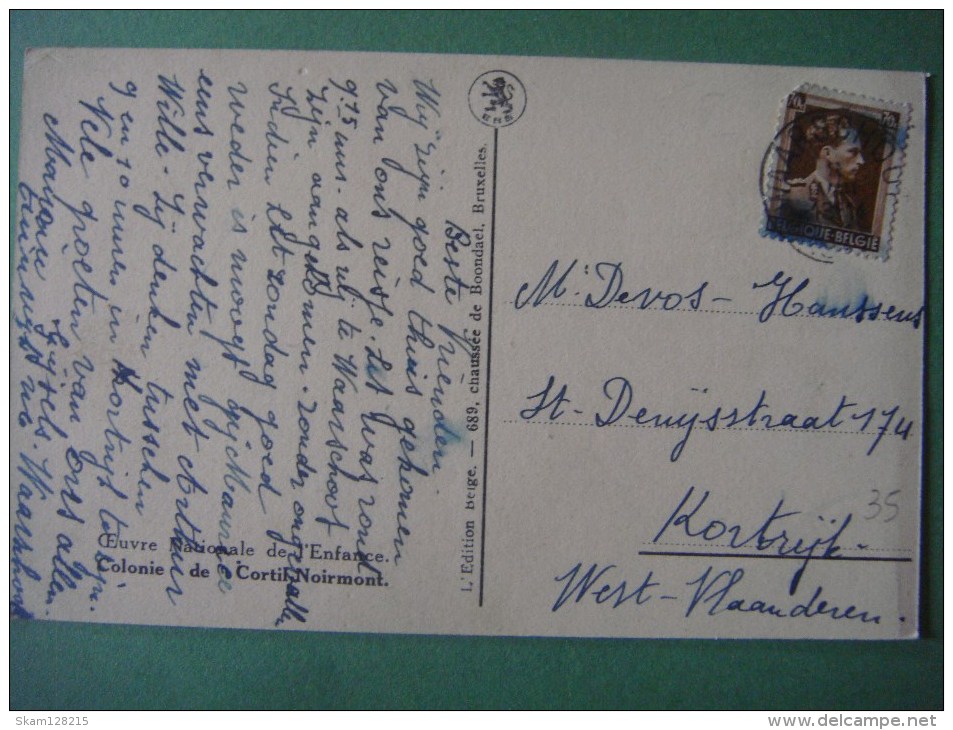 Beste Vrienden.
Wij zijn goed thuis gekomen
van ons reisje. Het was rond
9.15 uur. als wij te Waarschoot
zijn aangekomen. zonder ongevallen
Indien het zondag goed
weder is moogt gij Maurice
eens verwachten met Arthur
Wille. Zij denken tusschen
9 en 10 uuren in Kortrijk te zijn.
Vele groeten van ons allen.
Maurice Gijzels.
Waarschoot
Œuvre Nationale de l'Enfance.
Colonie de Cortil-Noirmont.
L'Edition Belge. — 689, chaussée de Boondael, Bruxelles.
BELGIQUE-BELGIË
Mr. Devos - Hanssens
St-Denijsstraat 174
Kortrijk.
West-Vlaanderen.
35
Skam128215
delcampe.net